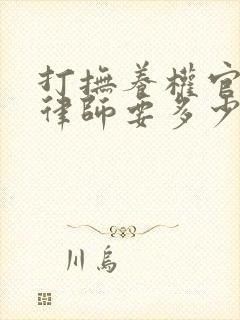 打撫養權官
律師要多少
川烏